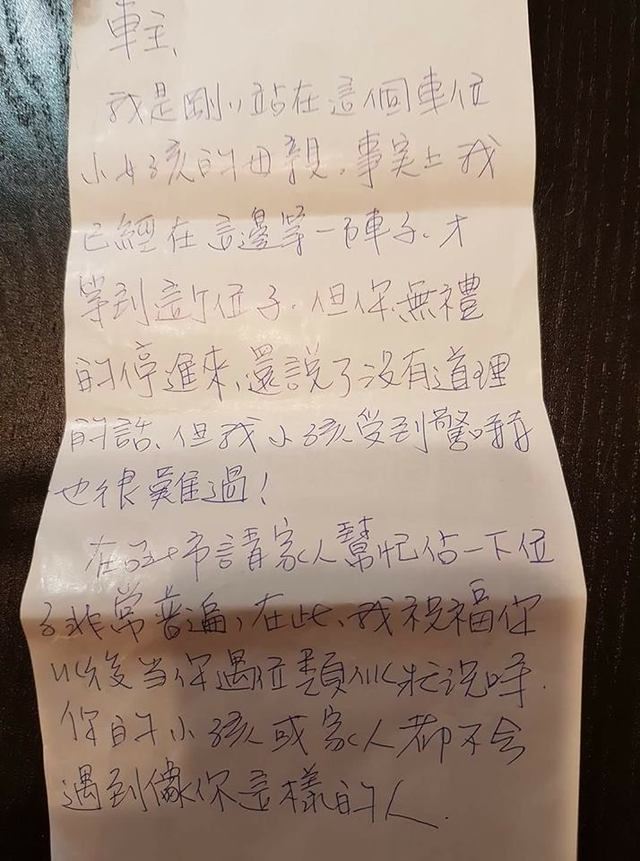 車主、
我是剛剛站在這個車位
小女孩的母親。事實上我
已經在這邊等一陣子、才
等到這个位子、但你無禮
的停進來、還說了沒有道理
的話、但我小孩受到驚嚇
也很難過!
在台北市請家人幫忙佔一下位
子非常普遍,在此、我祝福你
以後当你遇位類似狀況時、
你的小孩或家人都不会
遇到像你這樣的人.